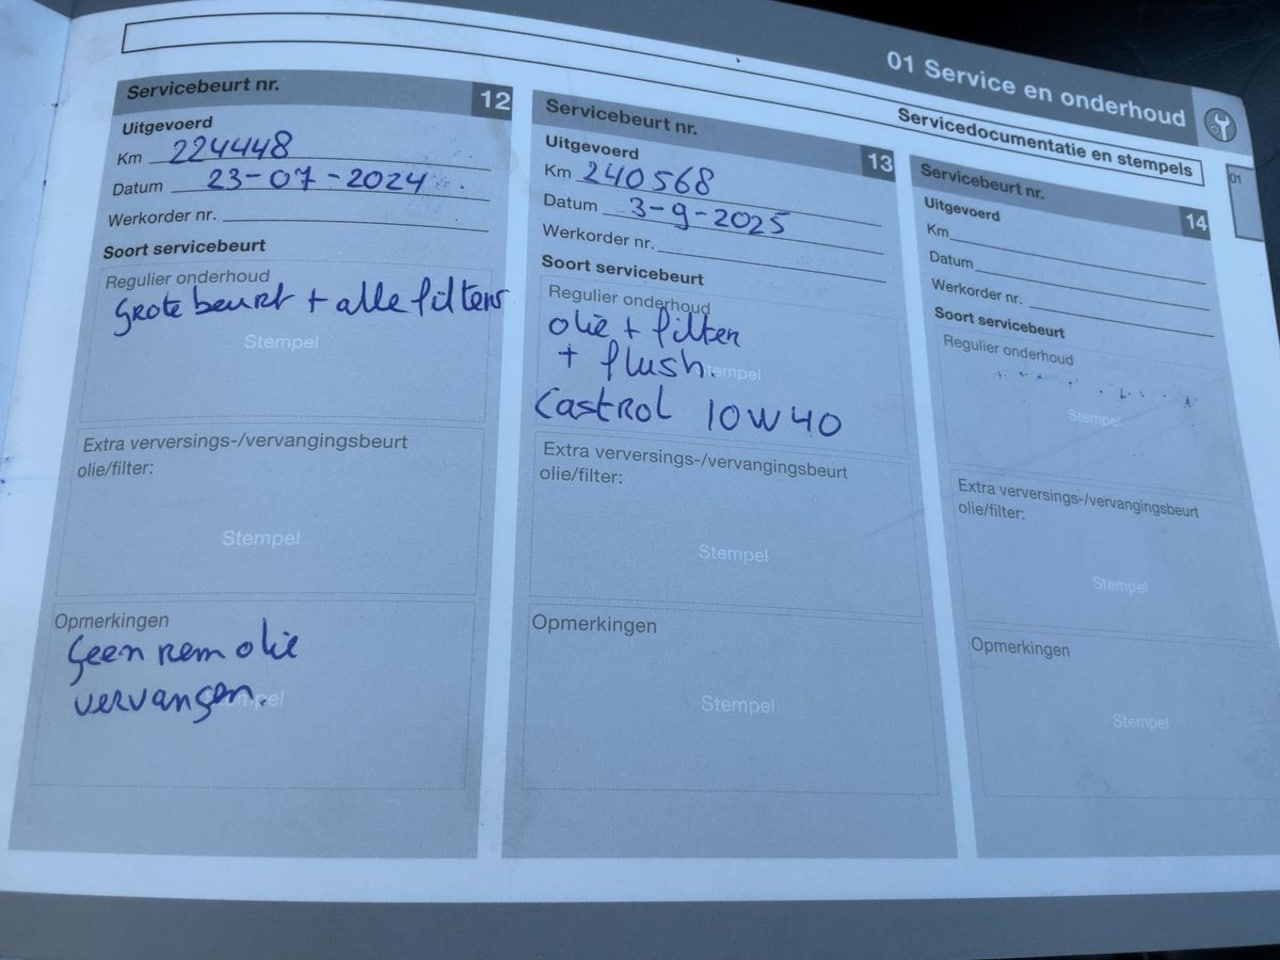 01 Service en onderhoud
Servicedocumentatie en stempels
01
Servicebeurt nr. 12
Uitgevoerd
Km 224448
Datum 23-07-2024
Werkorder nr.
Soort servicebeurt
Regulier onderhoud
Grote beurt + alle filters
Stempel
Extra verversings-/vervangingsbeurt
olie/filter:
Stempel
Opmerkingen
Geen rem olie
vervangen.
Stempel
Servicebeurt nr. 13
Uitgevoerd
Km 240568
Datum 3-9-2025
Werkorder nr.
Soort servicebeurt
Regulier onderhoud
olie + filter
+ flush.
Stempel
Castrol 10W40
Extra verversings-/vervangingsbeurt
olie/filter:
Stempel
Opmerkingen
Stempel
Servicebeurt nr. 14
Uitgevoerd
Km
Datum
Werkorder nr.
Soort servicebeurt
Regulier onderhoud
Stempel
Extra verversings-/vervangingsbeurt
olie/filter:
Stempel
Opmerkingen
Stempel